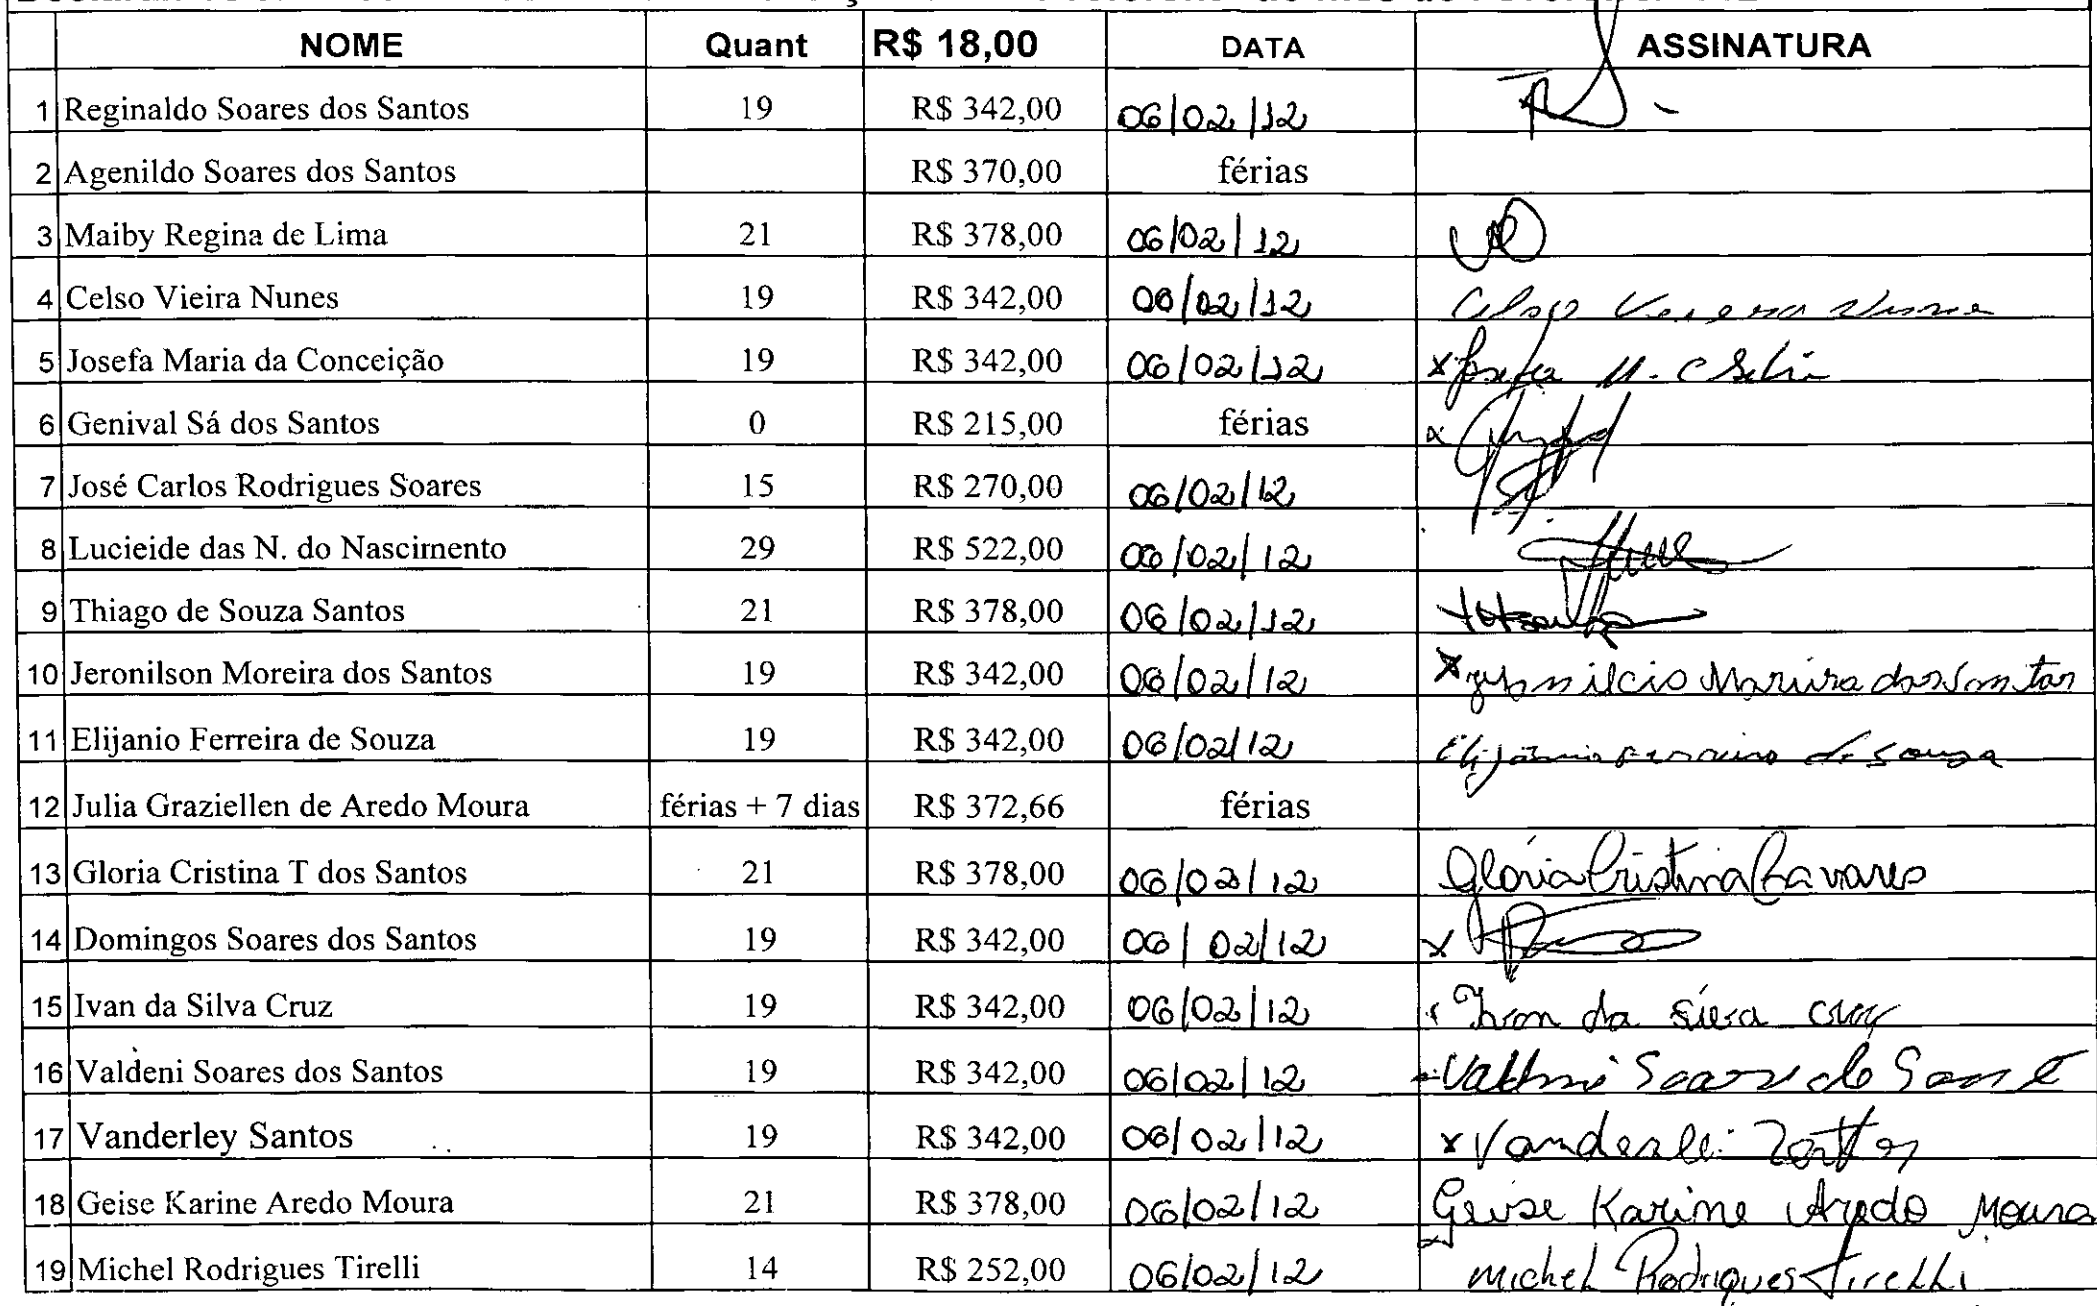 NOME Quant R$ 18,00 DATA ASSINATURA
1 Reginaldo Soares dos Santos 19 R$ 342,00 06/02/12
2 Agenildo Soares dos Santos R$ 370,00 férias
3 Maiby Regina de Lima 21 R$ 378,00 06/02/12
4 Celso Vieira Nunes 19 R$ 342,00 06/02/12 Celso
5 Josefa Maria da Conceição 19 R$ 342,00 06/02/12 x Josefa M. C
6 Genival Sá dos Santos 0 R$ 215,00 férias
7 José Carlos Rodrigues Soares 15 R$ 270,00 06/02/12
8 Lucieide das N. do Nascimento 29 R$ 522,00 06/02/12
9 Thiago de Souza Santos 21 R$ 378,00 06/02/12
10 Jeronilson Moreira dos Santos 19 R$ 342,00 06/02/12 x
11 Elijanio Ferreira de Souza 19 R$ 342,00 06/02/12 Elijânio Ferreira de Souza
12 Julia Graziellen de Aredo Moura férias + 7 dias R$ 372,66 férias
13 Gloria Cristina T dos Santos 21 R$ 378,00 06/02/12 Glória Cristina Tavares
14 Domingos Soares dos Santos 19 R$ 342,00 06/02/12 x
15 Ivan da Silva Cruz 19 R$ 342,00 06/02/12 Ivan da
16 Valdeni Soares dos Santos 19 R$ 342,00 06/02/12
17 Vanderley Santos 19 R$ 342,00 06/02/12 x Vanderlei
18 Geise Karine Aredo Moura 21 R$ 378,00 06/02/12 Geise Karine Aredo Moura
19 Michel Rodrigues Tirelli 14 R$ 252,00 06/02/12 Michel Rodrigues Tirelli